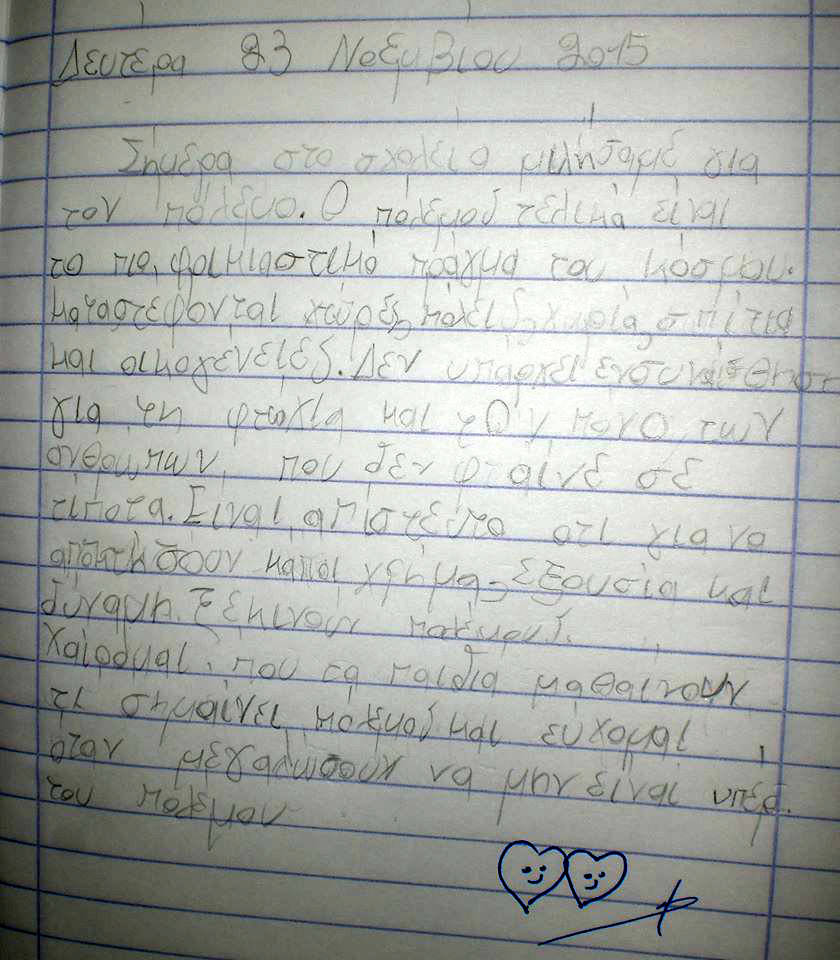 Δευτερα 23 Νοεμβιου 2015
Σήμερα στο σχολείο μιλήσαμε για
τον πόλεμο. Ο πόλεμος τελικά είναι
το πιο φοικιαστικό πράγμα του κόσμου.
καταστεφονται χώρες, πόλεις, χωριά, σπίτια
και οικογένειες. Δεν υπάρχει ενσυναίσθηση
για τη φτωχια και τον πονο των
ανθρωπων που δεν φταίνε σε
τιποτα. Είναι απιστευτο οτι για να
αποκτήσουν καποι χρήμα, εξουσία και
δύναμη. Ξεκινουν πολεμους.
Χαίρομαι που τα παιδια μαθαινουν
τι σημαίνει πολεμος και ευχομαι
οταν μεγαλωσουν να μην είναι υπέρ.
του πολεμου